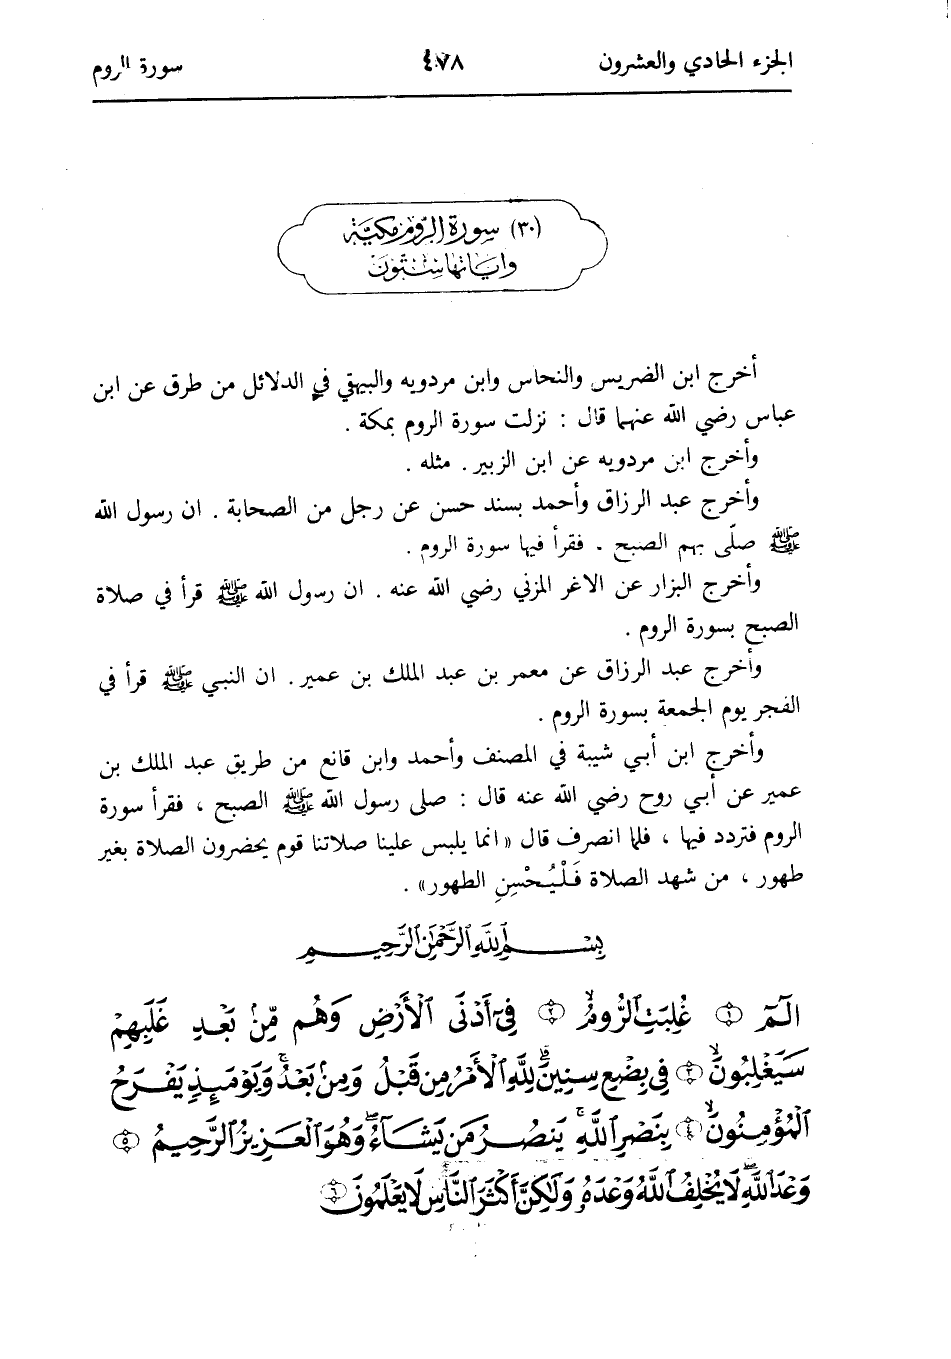 الجزء الحادي والعشرون ٤٧٨ سورة الروم
(٣٠) سورة الروم مكية
وآياتها ستون
أخرج ابن الضريس والنحاس وابن مردويه والبيهقي في الدلائل من طرق عن ابن
عباس رضي الله عنهما قال : نزلت سورة الروم بمكة .
وأخرج ابن مردويه عن ابن الزبير . مثله .
وأخرج عبد الرزاق وأحمد بسند حسن عن رجل من الصحابة . ان رسول الله
ﷺ صلّى بهم الصبح . فقرأ فيها سورة الروم .
وأخرج البزار عن الاغر المزني رضي الله عنه . ان رسول الله ﷺ قرأ في صلاة
الصبح بسورة الروم .
وأخرج عبد الرزاق عن معمر بن عبد الملك بن عمير . ان النبي ﷺ قرأ في
الفجر يوم الجمعة بسورة الروم .
وأخرج ابن أبي شيبة في المصنف وأحمد وابن قانع من طريق عبد الملك بن
عمير عن أبي روح رضي الله عنه قال : صلى رسول الله ﷺ الصبح ، فقرأ سورة
الروم فتردد فيها ، فلما انصرف قال « انما يلبس علينا صلاتنا قوم يحضرون الصلاة بغير
طهور ، من شهد الصلاة فَلْيُحْسِنِ الطهور» .
بِسْمِ ٱللَّهِ ٱلرَّحْمَٰنِ ٱلرَّحِيمِ
الٓمٓ ١ غُلِبَتِ ٱلرُّومُ ٢ فِىٓ أَدْنَى ٱلْأَرْضِ وَهُم مِّنۢ بَعْدِ غَلَبِهِمْ
سَيَغْلِبُونَ ٣ فِى بِضْعِ سِنِينَ لِلَّهِ ٱلْأَمْرُ مِن قَبْلُ وَمِنۢ بَعْدُ وَيَوْمَئِذٍ يَفْرَحُ
ٱلْمُؤْمِنُونَ ٤ بِنَصْرِ ٱللَّهِ يَنصُرُ مَن يَشَآءُ وَهُوَ ٱلْعَزِيزُ ٱلرَّحِيمُ ٥
وَعْدَ ٱللَّهِ لَا يُخْلِفُ ٱللَّهُ وَعْدَهُۥ وَلَٰكِنَّ أَكْثَرَ ٱلنَّاسِ لَا يَعْلَمُونَ ٦